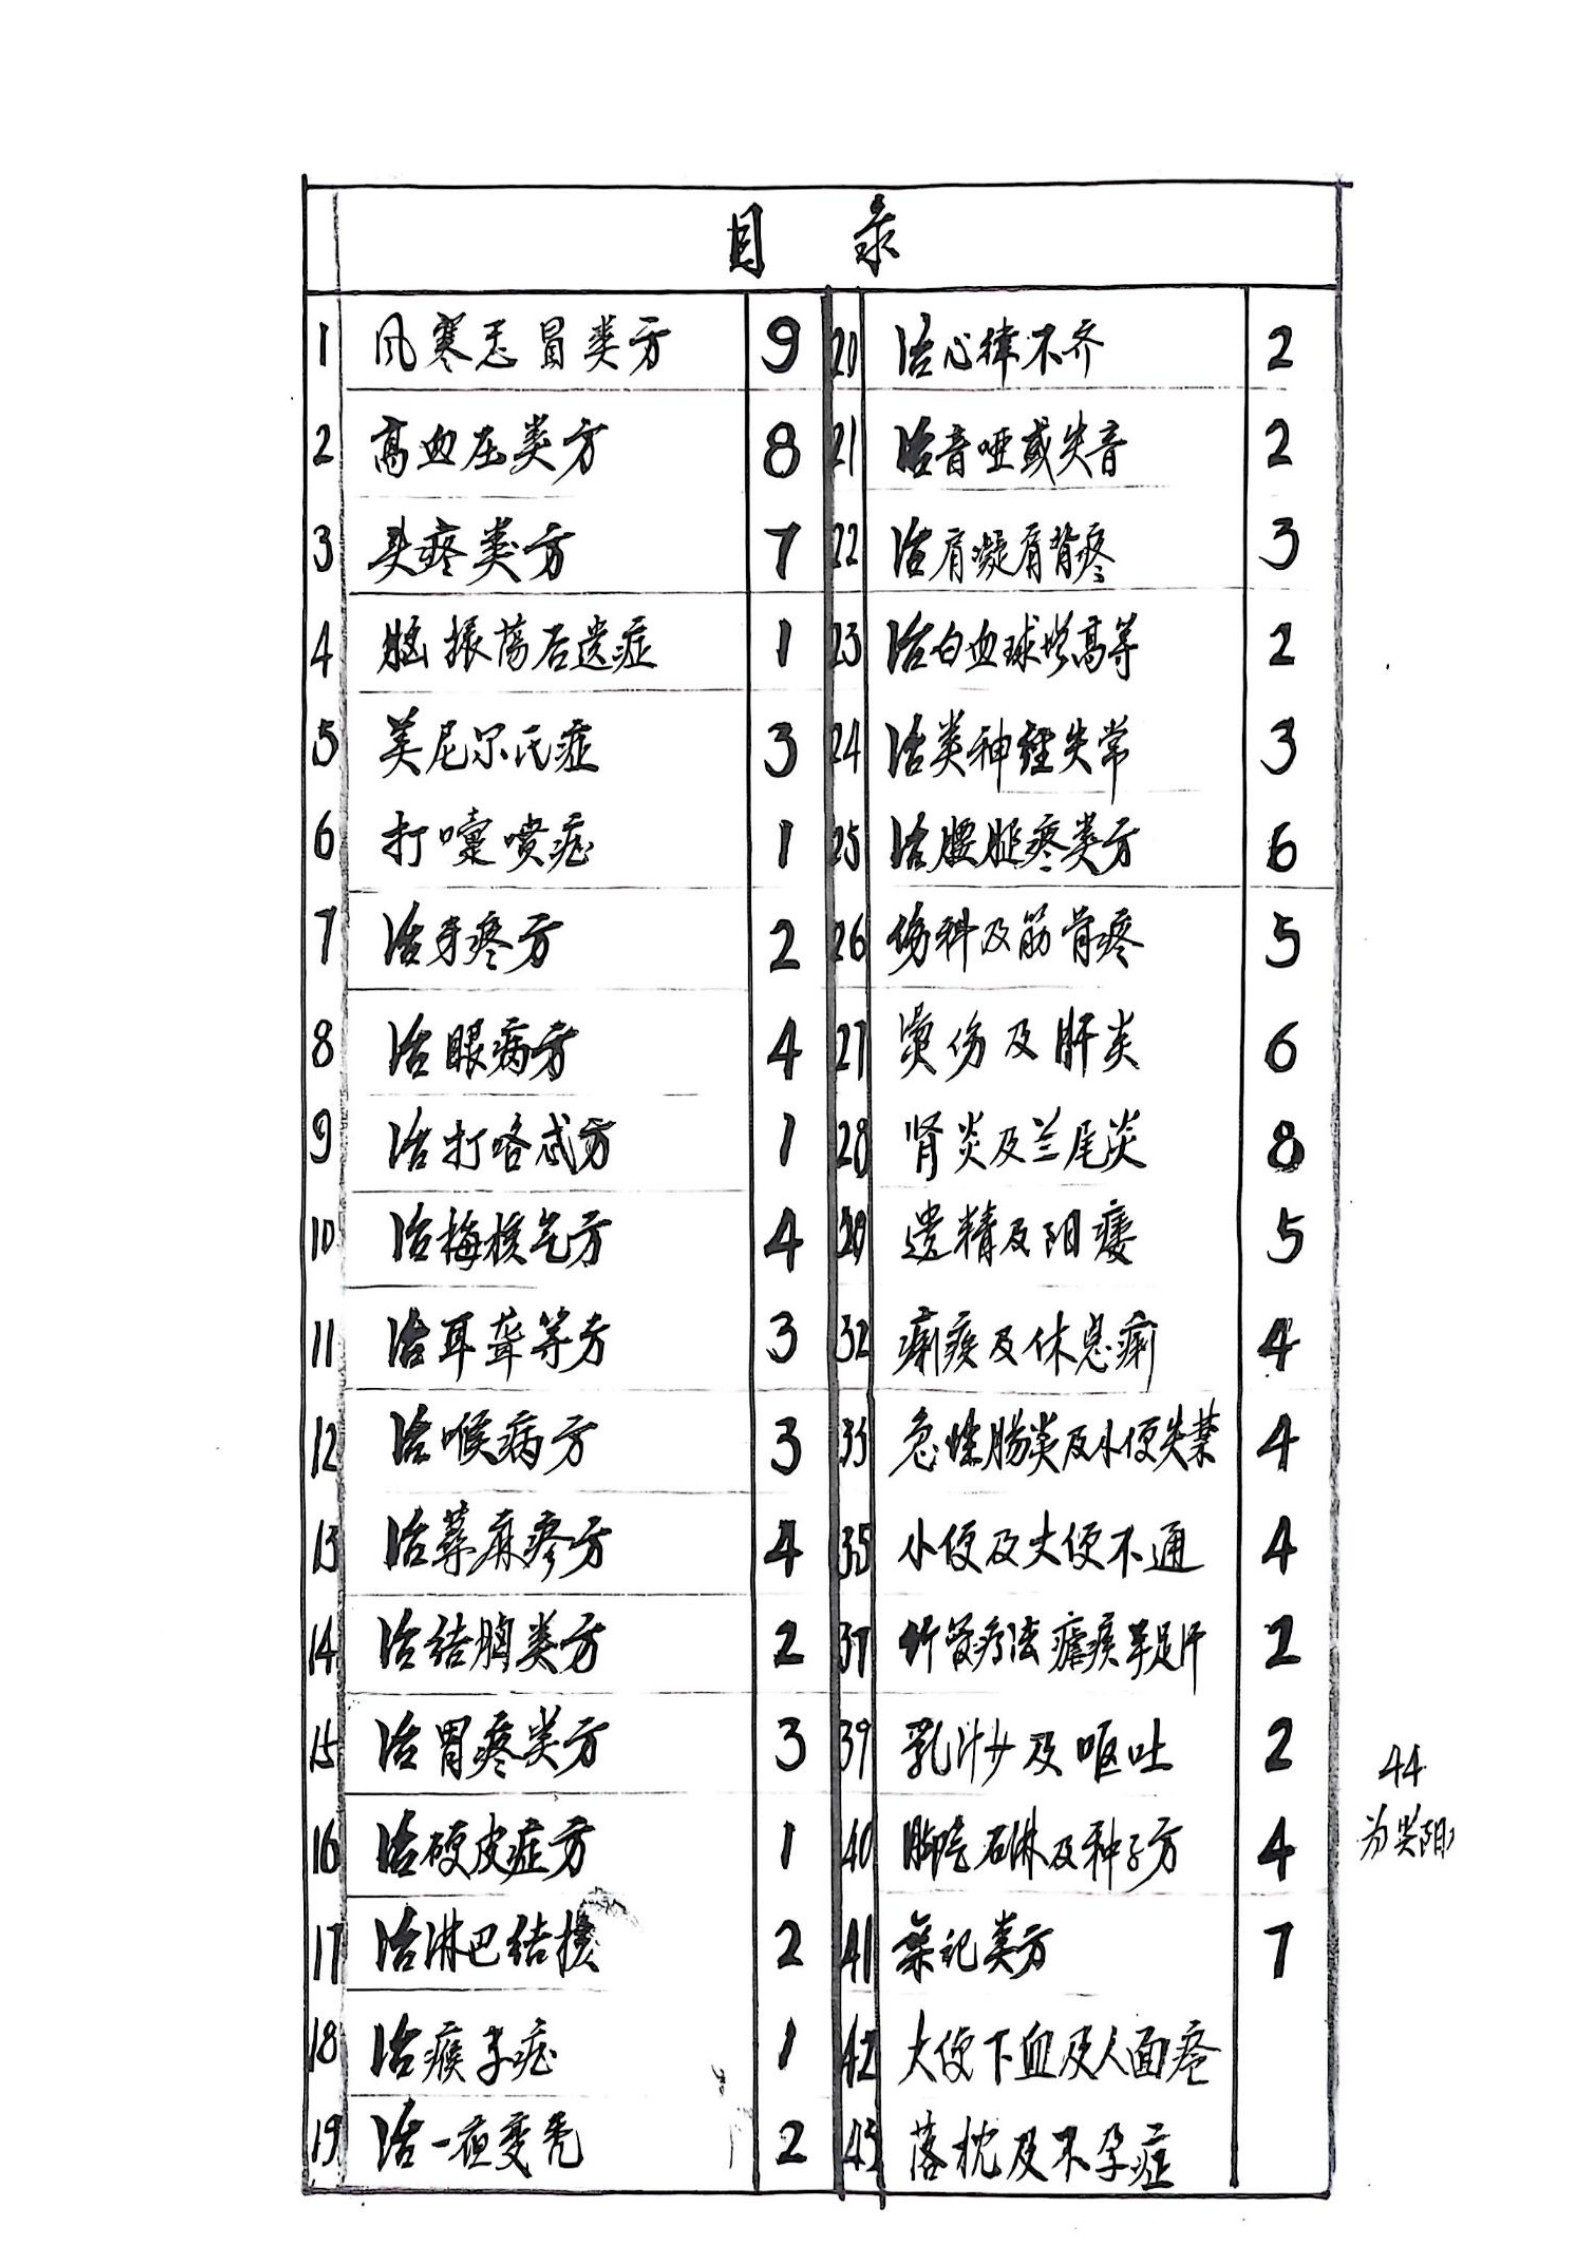 目 录
1 风寒感冒类方 9
2 高血压类方 8
3 头疼类方 7
4 脑振荡后遗症 1
5 美尼尔氏症 3
6 打嚏喷症 1
7 治牙疼方 2
8 治眼病方 4
9 治打咯忒方 1
10 治梅核气方 4
11 治耳聋等方 3
12 治喉病方 3
13 治荨麻疹方 4
14 治结胸类方 2
15 治胃疼类方 3
16 治硬皮症方 1
17 治淋巴结核 2
18 治瘊子症 1
19 治一夜变秃 2
20 治心律不齐 2
21 治音哑或失音 2
22 治肩凝肩背疼 3
23 治白血球增高等 2
24 治类神经失常 3
25 治腰腿疼类方 6
26 伤科及筋骨疼 5
27 烫伤及肝炎 6
28 肾炎及兰尾炎 8
29 遗精及阳痿 5
32 痢疾及休息痢 4
33 急性肠炎及小便失禁 4
35 小便及大便不通 4
37 竹管疗法瘧疾手足汗 2
39 乳汁少及呕吐 2
40 脚气石淋及种子方 4
41 杂记类方 7
42 大便下血及人面疮
43 落枕及不孕症
44